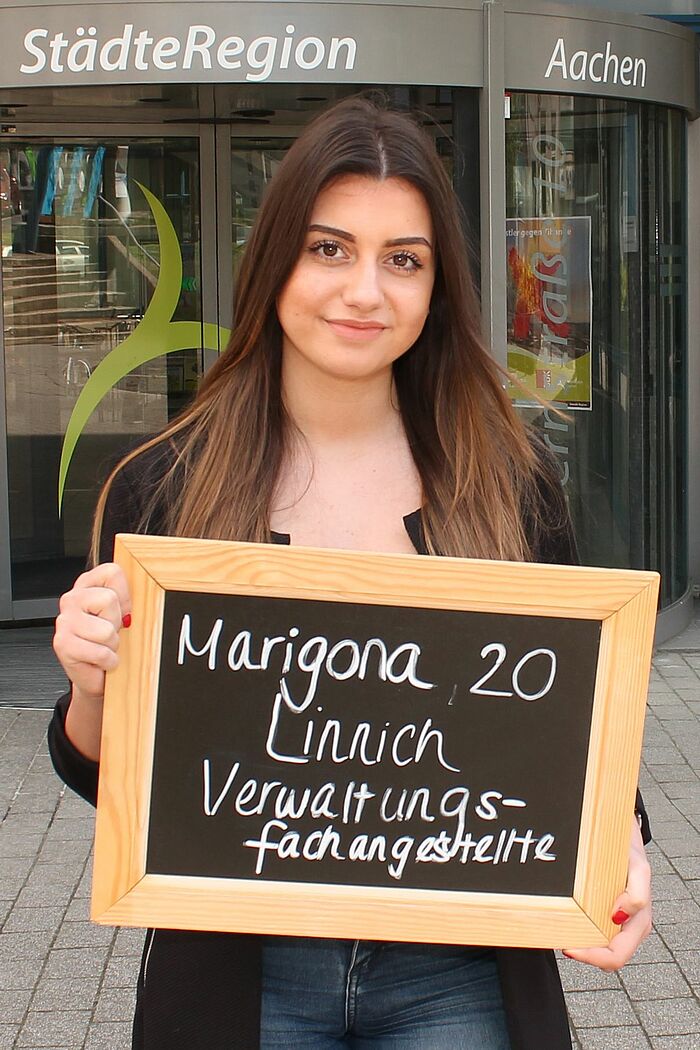 StädteRegion Aachen
Marigona, 20
Linnich
Verwaltungs-
fachangestellte